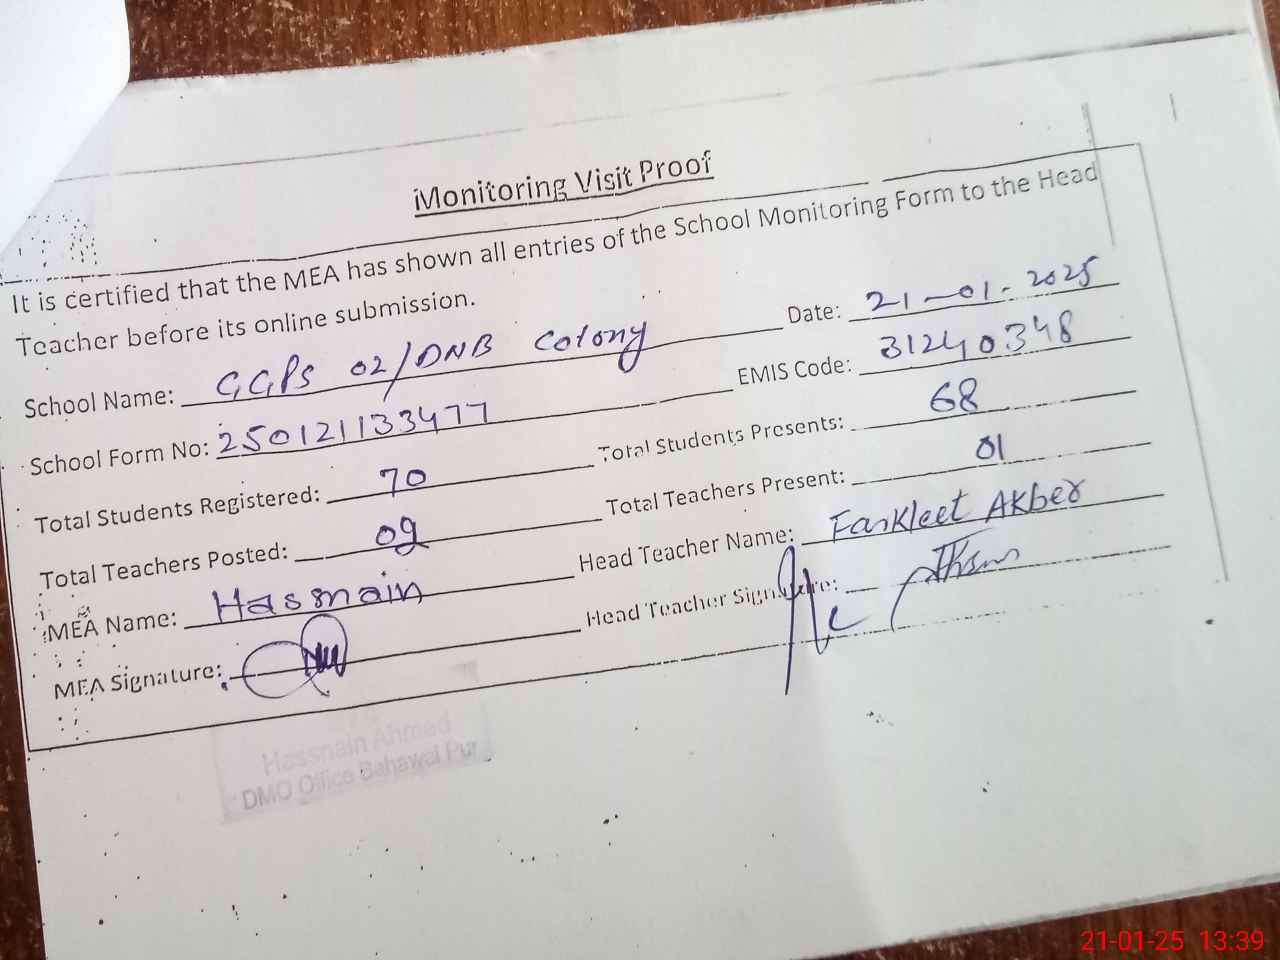 Monitoring Visit Proof
It is certified that the MEA has shown all entries of the School Monitoring Form to the Head
Teacher before its online submission.
School Name: GGPS 02/DNB Colony Date: 21-01-2025
School Form No: 250121133477 EMIS Code: 31240348
Total Students Registered: 70 Total Students Presents: 68
Total Teachers Posted: Total Teachers Present: 01
MEA Name: Hasnain Head Teacher Name: Akber
MEA Signature: Head Teacher Signature:
Hassnain Ahmed
DMO Office Bahawal Pur
21-01-25 13:39